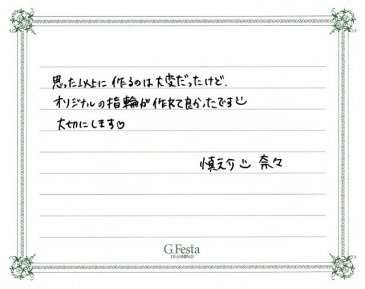 思った以上に作るのは大変だったけど、
オリジナルの指輪が作れて良かったです
大切にします♡
慎之介 奈々
G.Festa
DIAMOND